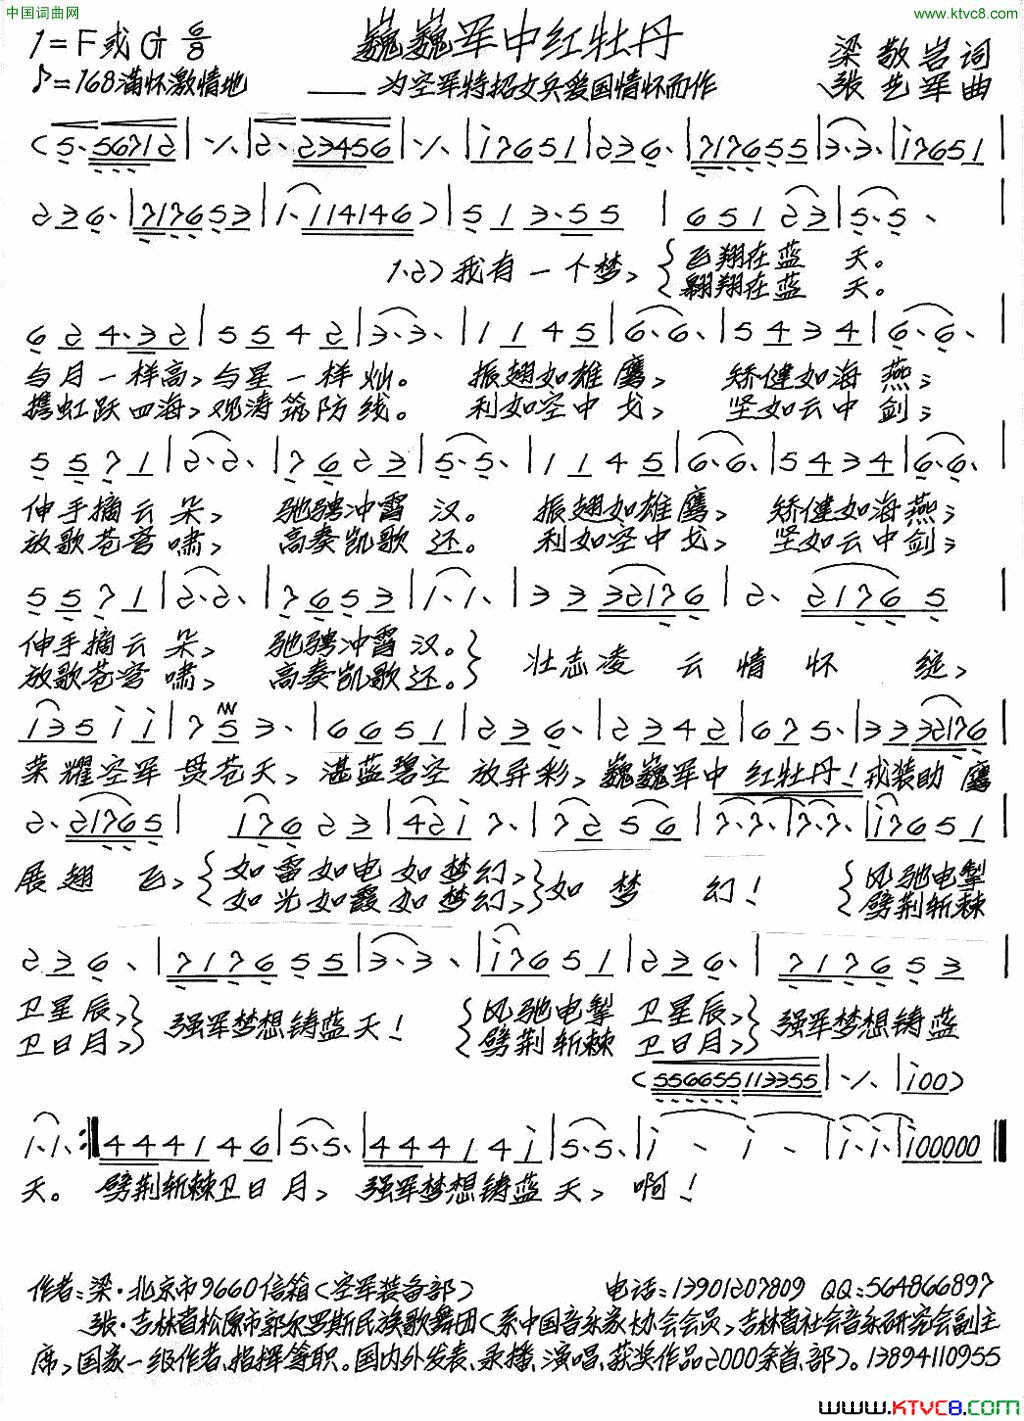 中国词曲网
www.ktvc8.com
1=F或G 6/8
巍巍军中红牡丹
梁敬岩词
♪=168满怀激情地
——为空军特招文兵爱国情怀而作
张艺军曲
(5·56712|·/·|2·23456|·/·|i7651|236·|717655|3·3·|i7651|
236·|717653|1·114146)|513·55|65123|5·5·|
1.2)我有一个梦, {飞翔在蓝 天。
翱翔在蓝 天。
624·32|5542|3·3·|1145|6·6·|5434|6·6·|
与月一样高,与星一样灿。 振翅如雄鹰, 矫健如海燕;
携虹跃四海,观涛筑防线。 利如空中戈, 坚如云中剑;
5571|2·2·|7623|5·5·|1145|6·6·|5434|6·6·|
伸手摘云朵, 驰骋冲霄汉。 振翅如雄鹰, 矫健如海燕;
放歌苍穹啸, 高奏凯歌还。 利如空中戈, 坚如云中剑;
5571|2·2·|7653|1·1·|3332176|2·21765|
伸手摘云朵, 驰骋冲霄汉。}
放歌苍穹啸, 高奏凯歌还。} 壮志凌云情怀 绽,
i35ii|753·|6651|236·|2342|675·|3332176|
荣耀空军贯苍天, 湛蓝碧空放异彩, 巍巍军中红牡丹!戎装助鹰
2·21765|17623|42i7·|7256|7·7·|7·7·|i7651|
展翅飞, {如雷如电如梦幻,}如梦 幻! {风驰电掣
如光如霞如梦幻, 劈荆斩棘
236·|717655|3·3·|i7651|236·|717653|
卫星辰,}强军梦想铸蓝天! {风驰电掣 卫星辰,}强军梦想铸蓝
卫日月, 劈荆斩棘 卫日月,
(556655113355|·/·|i00)
1·1·:‖444146|5·5·|44414i|5·5·|i·i·|i·i·|i00000‖
天。 劈荆斩棘卫日月, 强军梦想铸蓝天, 啊!
作者:梁·北京市9660信箱(空军装备部) 电话:13901207809 QQ:564866897
张·吉林省松原市郭尔罗斯民族歌舞团(系中国音乐家协会会员,吉林省社会音乐研究会副主
席,国家一级作者、指挥等职。国内外发表、录播、演唱、获奖作品2000余首、部)。13894110955
www.KTVC8.com